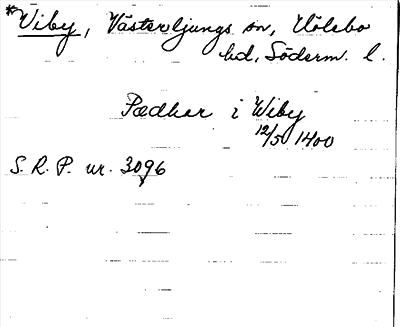 *Viby, Västerljungs sn, Hölebo
hd, Söderm. l.
Pædhar i Wiby
12/5 1400
S. R. P. nr. 3096